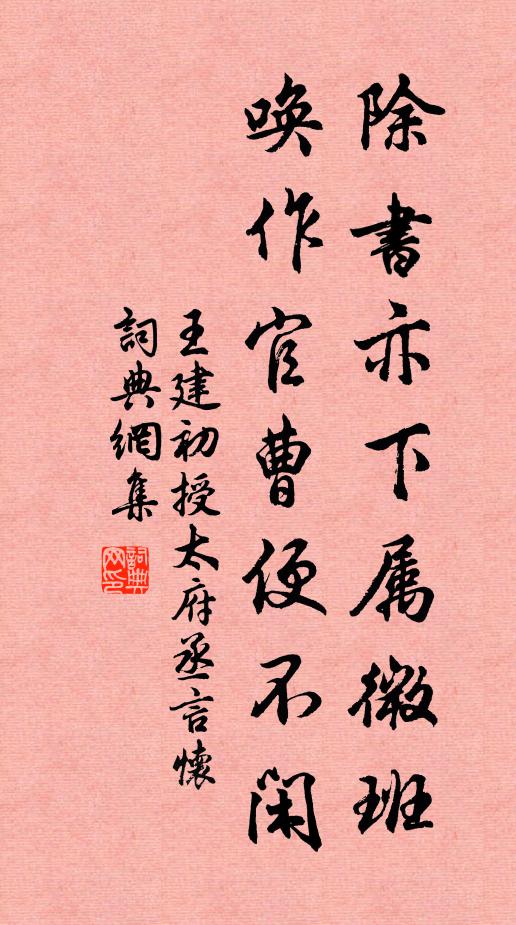 除書亦下属微班
喚作官曹便不閑
王建初授太府丞言懷
詞典網集
詞典
网印